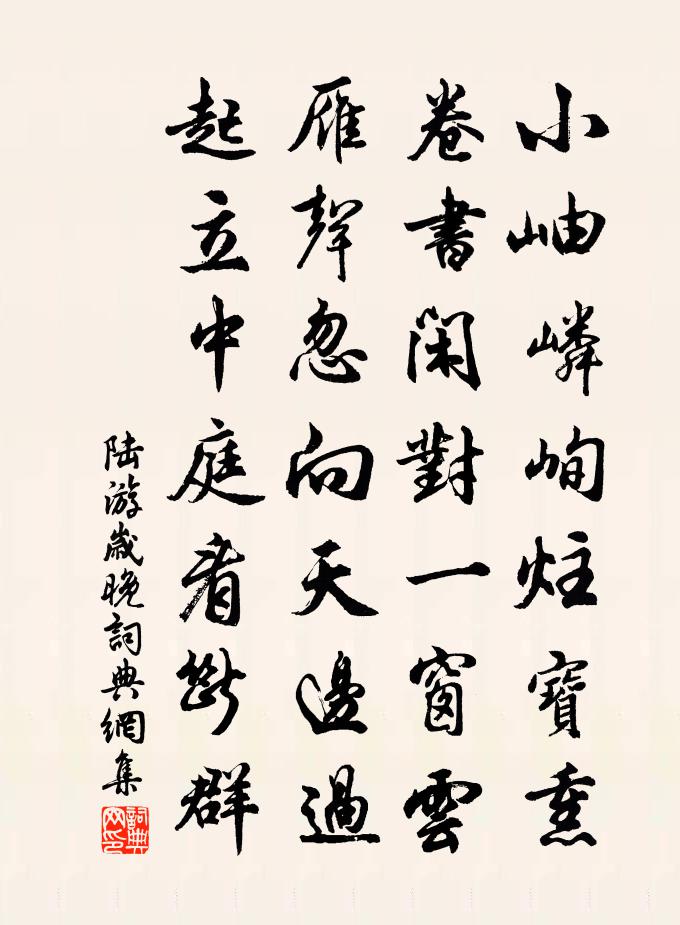 小岫嶙峋炷寶熏
卷書閑對一窗雲
雁聲忽向天邊過
起立中庭看斷群
陸游歲晚詞典網集
詞典網印